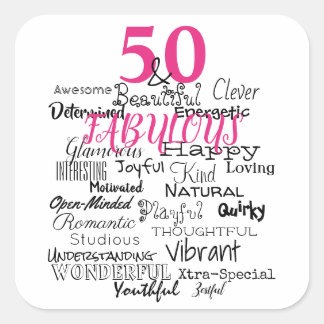 50
&
Awesome Beautiful Clever
Determined Energetic
FABULOUS
Glamorous Happy
INTERESTING Joyful Kind Loving
Motivated NATURAL
Open-Minded Playful Quirky
Romantic THOUGHTFUL
Studious
UNDERSTANDING Vibrant
WONDERFUL Xtra-Special
Youthful Zestful